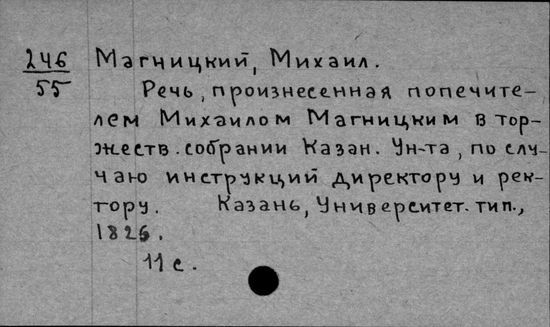 246 Магницкий, Михаил.
55 Речь, произнесенная попечите-
лем Михаилом Магницким в тор-
жеств. собрании Казан. Ун-та, по слу-
чаю инструкций директору и рек-
тору. Казань, Университет. тип.,
1826.
11 с.